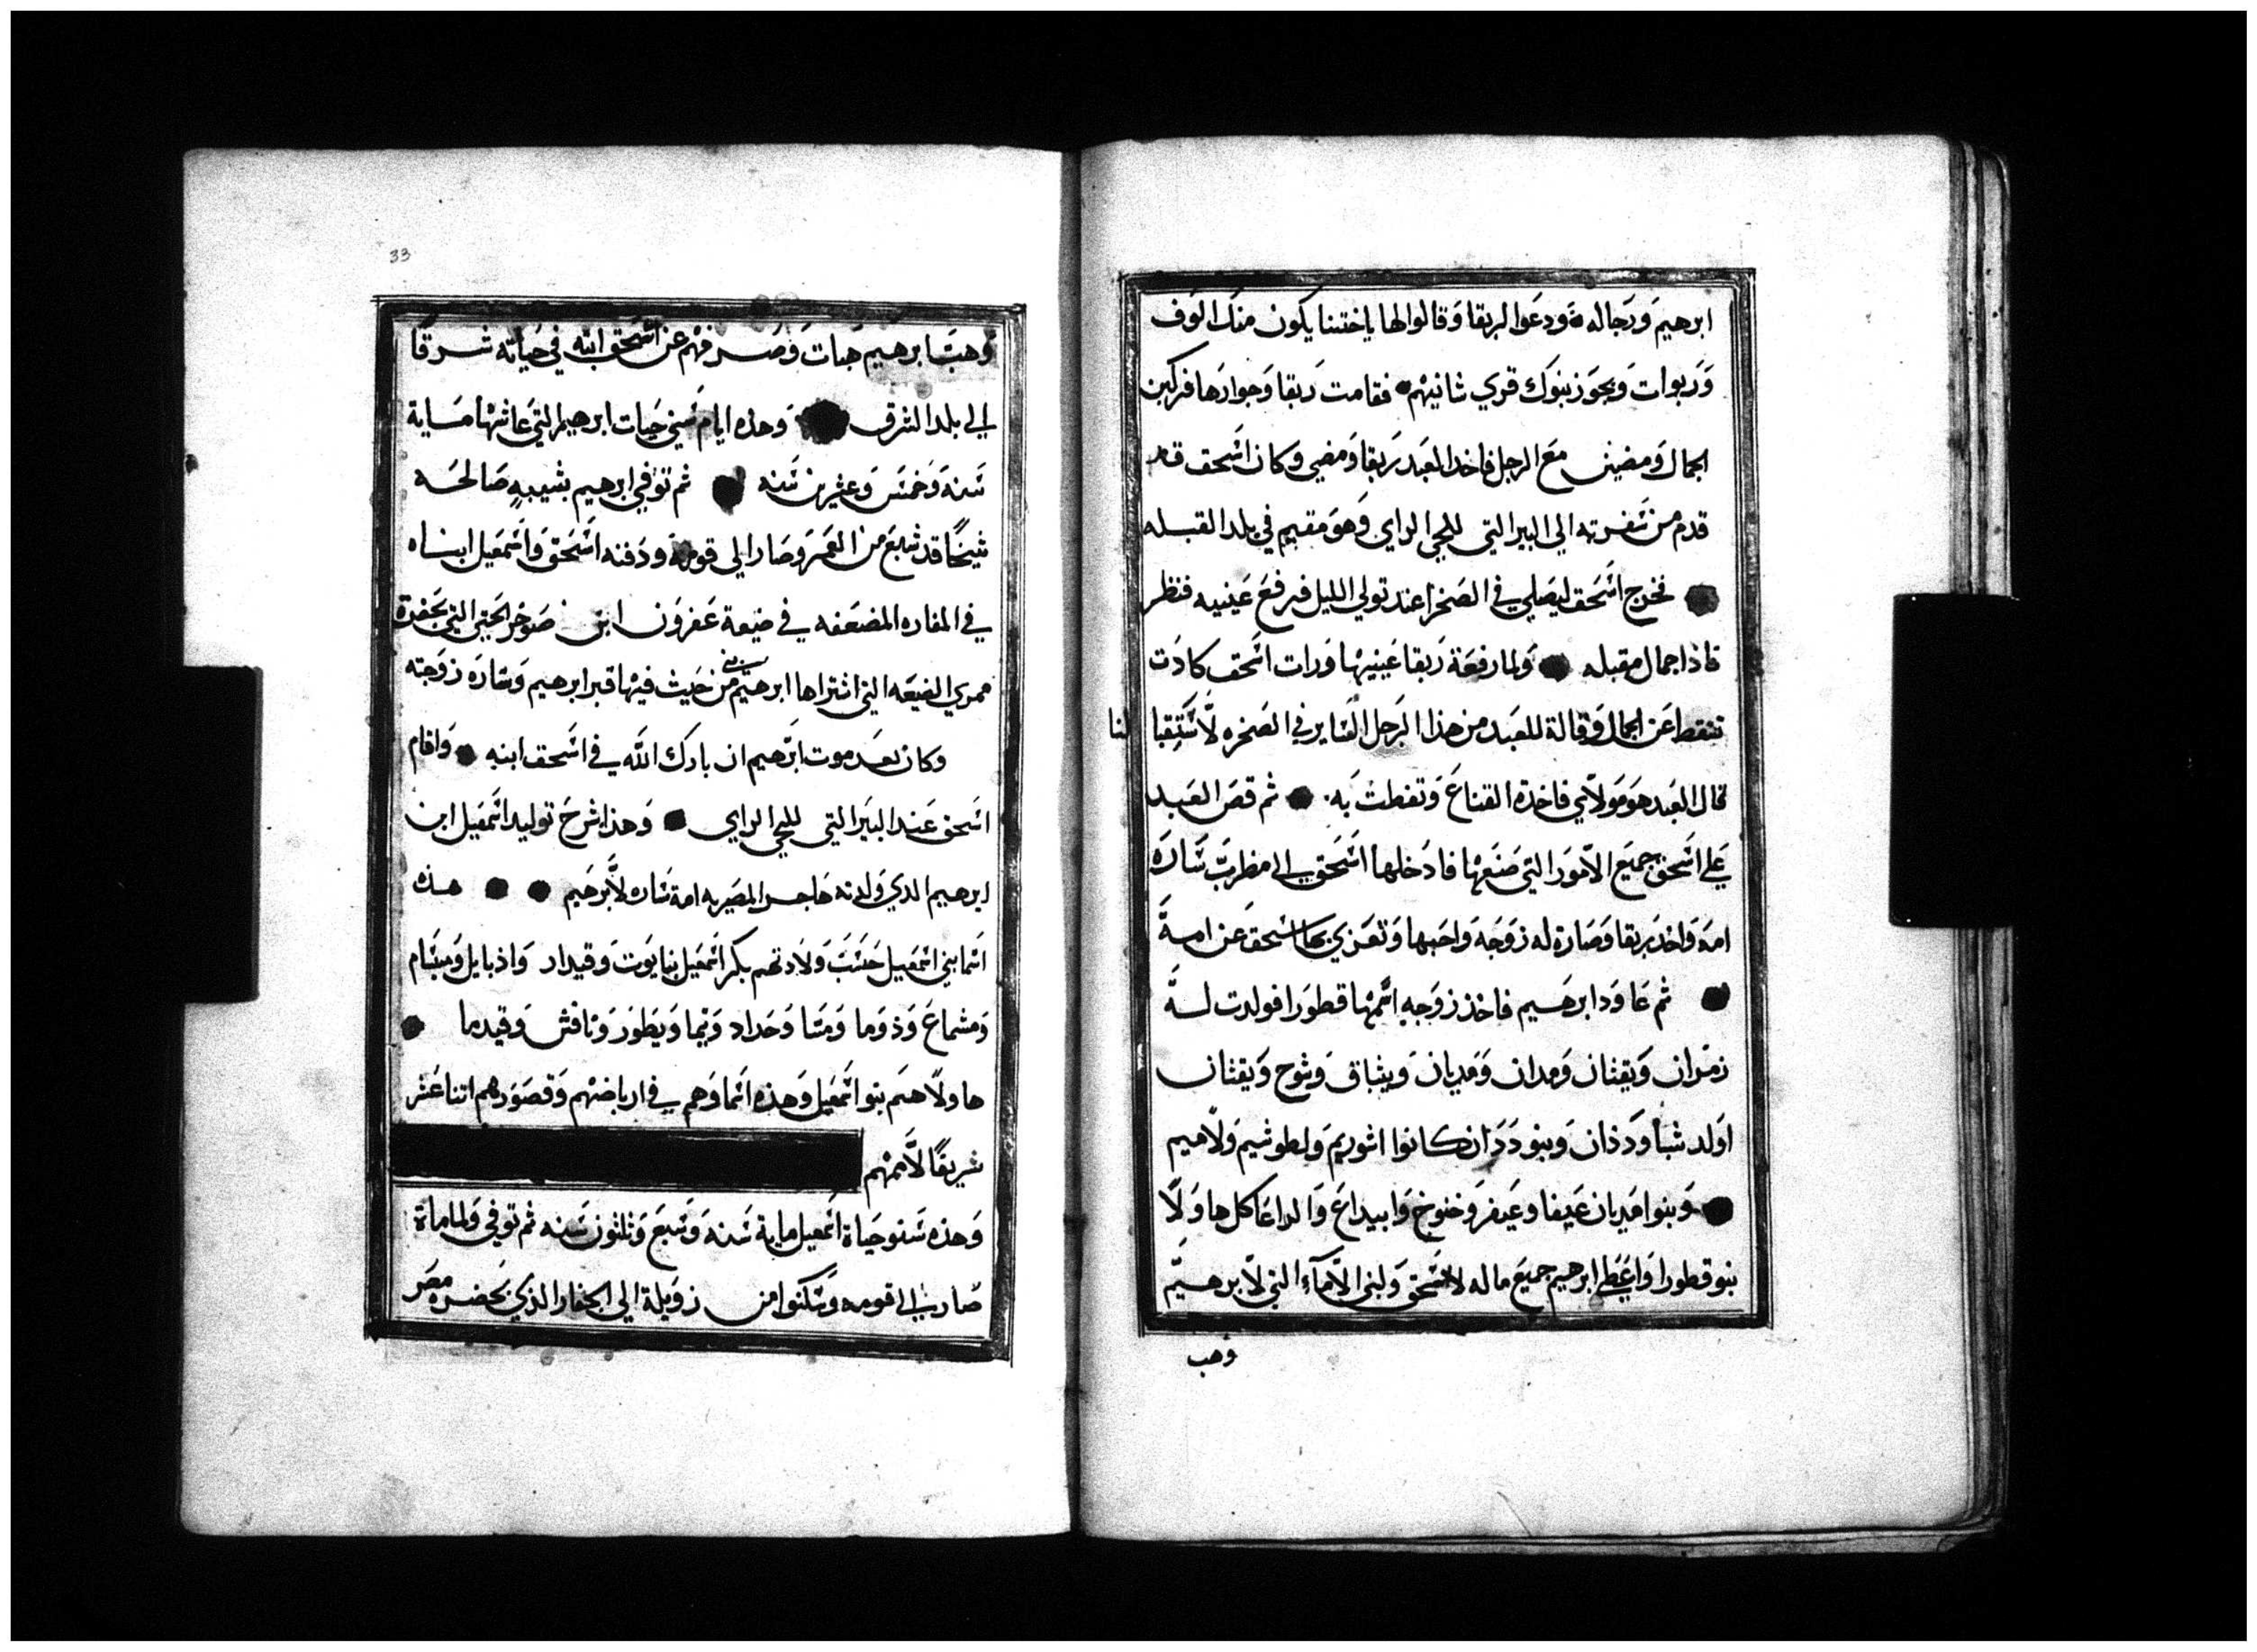 ابرهيم ورجاله ودعوا لربقا وقالوا لها ياختنا يكون منك الوف
وربوات ويحوز بنوك قري شانيهم فقامت ربقا وجوارها فركبن
الجمال ومضين مع الرجل فاخد العبد ربقا ومضي وكان اسحق قد
قدم من سفرته الي البير التي للحي الراي وهو مقيم في بلد القبله
فخرج اسحق ليصلي في الصحرا عند تولي الليل فرفع عينيه فنظر
فاذا جمال مقبله ولما رفعة ربقا عينيها ورات اسحق كادت
تسقط عن الجمال وقالة للعبد من هذا الرجل الساير في الصخره لاستقبا لنا
فقال العبد هو مولاي فاخدة القناع وتغطت به ثم قص العبد
علي اسحق جميع الامور التي صنعها فادخلها اسحق الي مظرب ساره
امه واخد ربقا وصارة له زوجه واحبها وتعزي بها اسحق عن امه
ثم عاود ابرهيم فاخذ زوجه اسمها قطورا فولدت له
زمران ويقثان ومدان ومديان ويشباق وشوح ويقثان
اولد شبا وددان وبنو ددان كانوا اشوريم ولطوشيم ولاميم
وبنوا مديان عيفا وعيفر وخنوخ وابيداع والداعا كل هاولا
بنو قطورا واعطي ابرهيم جميع ماله لاسحق ولبني الاماء التي لابرهيم
وهب
33
وهب ابرهيم هبات وصرفهم عن اسحق ابنه في حياته شرقا
الي بلد الشرق وهذه ايام سني حيات ابرهيم التي عاشها مايه
سنه وخمس وعشرين سنه ثم توفي ابرهيم بشيبه صالحه
شيخا قد شبع من العمر وصار الي قومه ودفنه اسحق واسمعيل ابناه
في المغاره المضعفه في ضيعة عفرون ابن صوخر الحتي التي بحضرة
ممري الضيعه التي اشتراها ابرهيم من بني حيث فيها قبر ابرهيم وساره زوجته
وكان بعد موت ابرهيم ان بارك الله في اسحق ابنه واقام
اسحق عند البير التي للحي الراي وهذا شرح توليد اسمعيل ابن
ابرهيم الدي ولدته هاجر المصريه امة ساره لابرهيم هذه
اسما بني اسمعيل حسب ولادتهم بكر اسمعيل بنايوت وقيدار واذبايل ومبسام
ومشماع وذوما ومسا وحداد وتيما ويطور ونافش وقيدما
هاولا هم بنو اسمعيل وهذه اسماوهم في ارباضهم وقصورهم اتنا عشر
شريفا لاممهم
وهذه سنو حياة اسمعيل ماية سنه وسبع وثلثون سنه ثم توفي ولما ماة
صار الي قومه وسكنوا من زويلة الي الجفار الذي بحضرة مصر